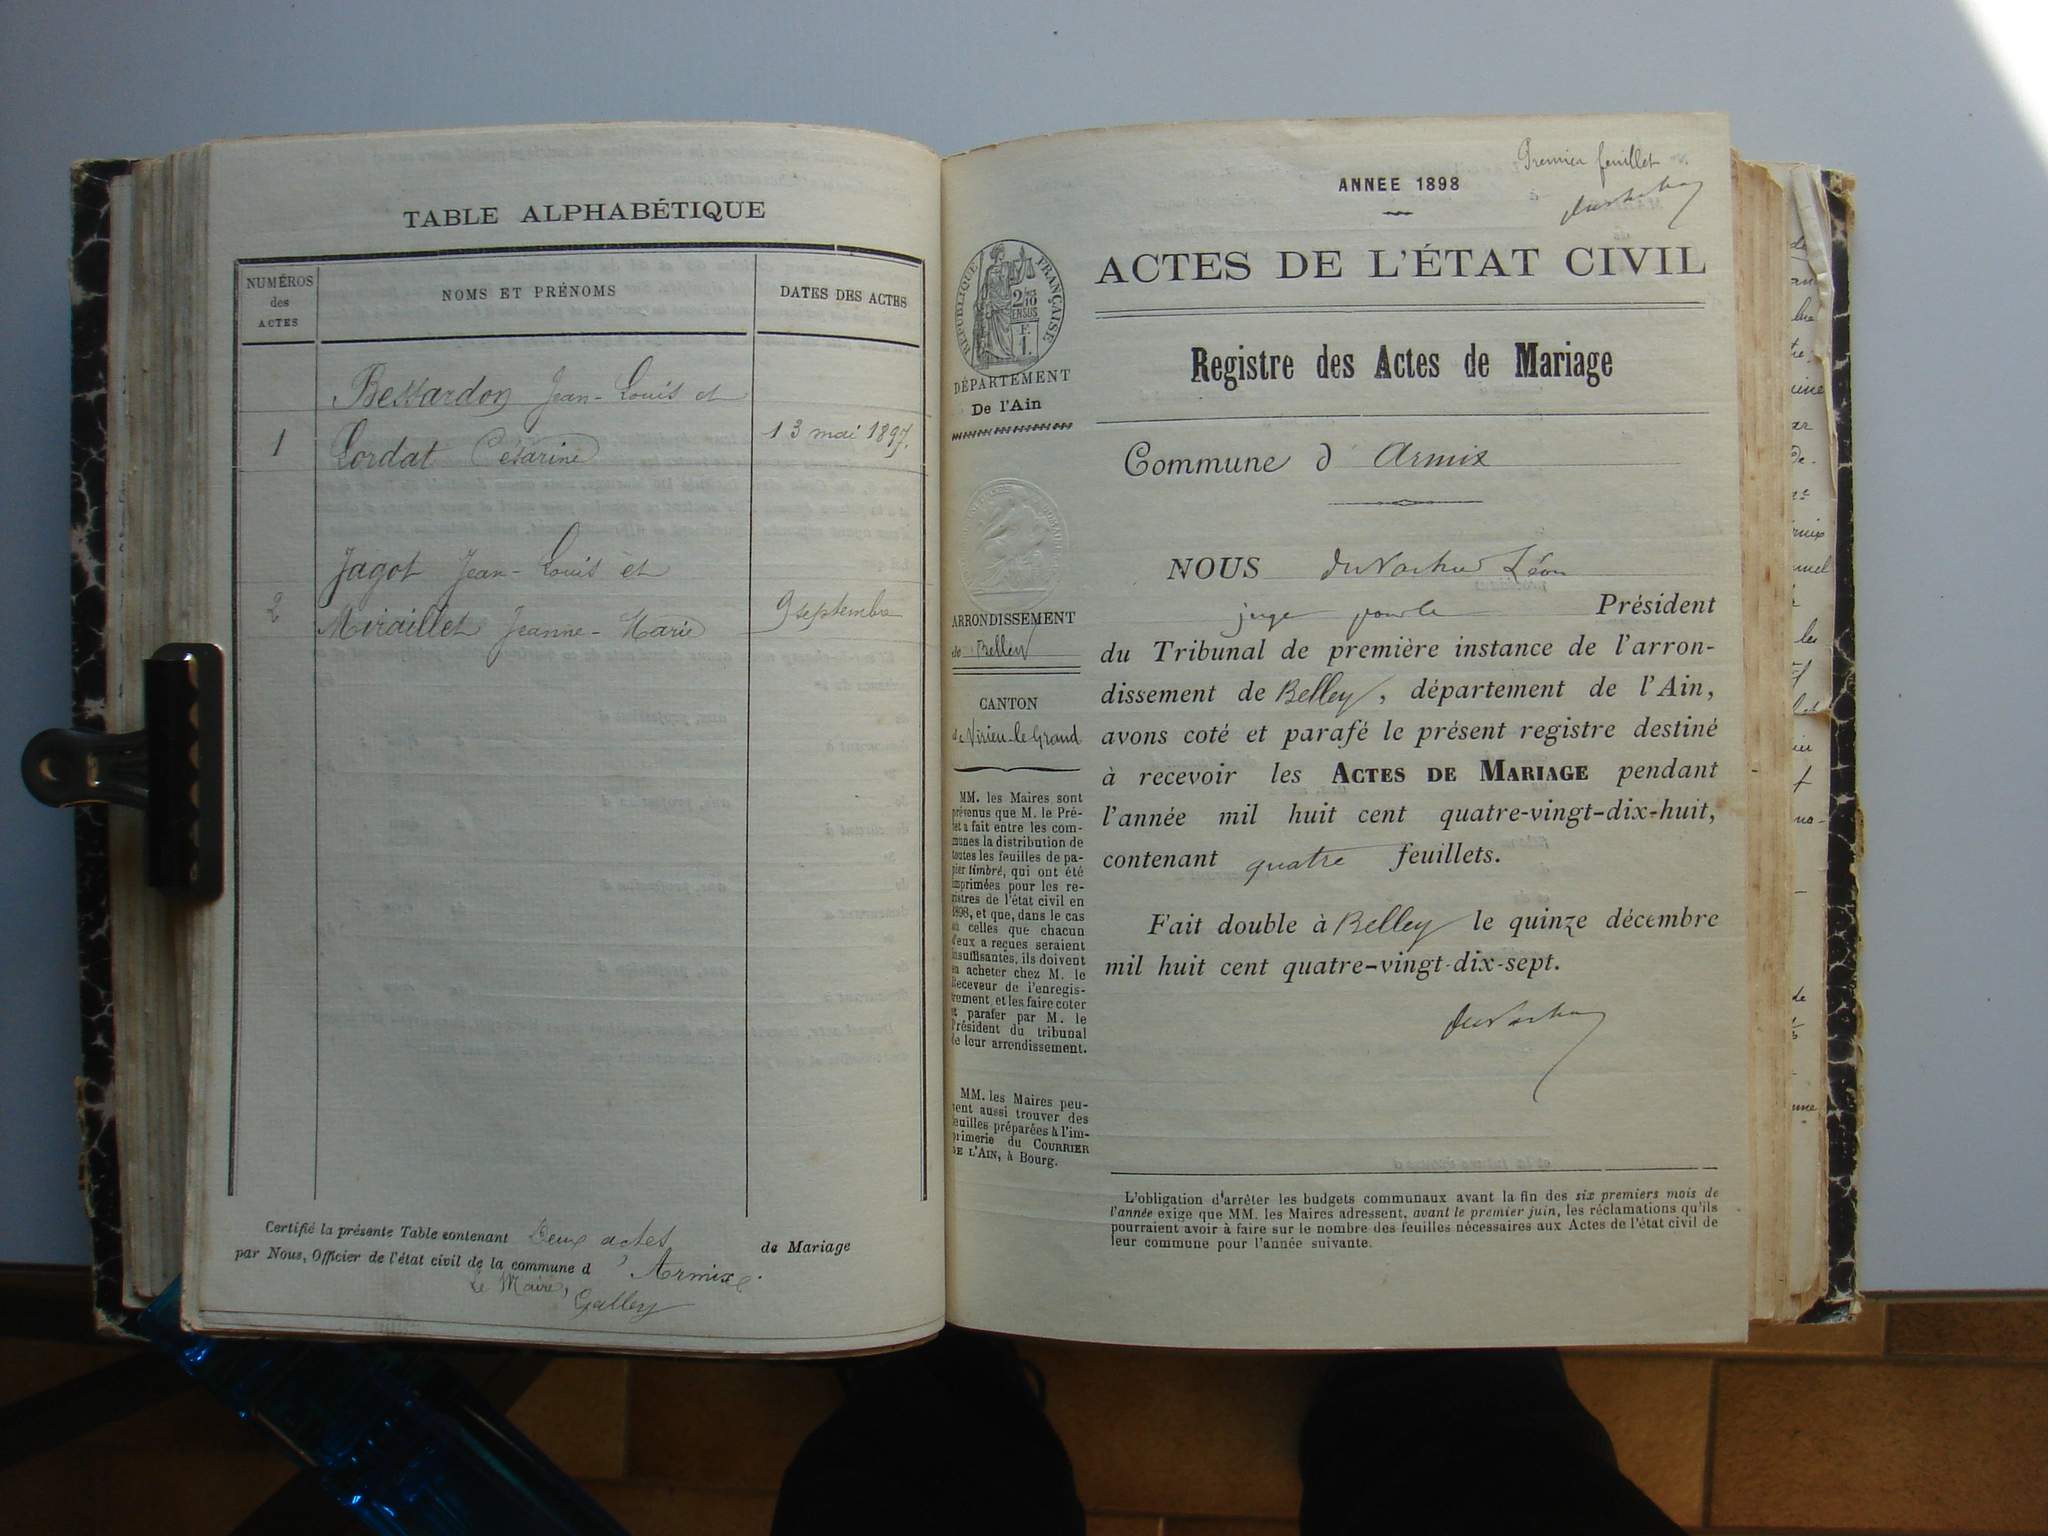 TABLE ALPHABÉTIQUE
NUMÉROS des ACTES
NOMS ET PRÉNOMS
DATES DES ACTES
Bessardon Jean-Louis et
1 Lordat Césarine 13 mai 1897.
Jagot Jean-Louis et
2 Miraillet Jeanne-Marie 9 septembre
Certifié la présente Table contenant Deux actes de Mariage
par Nous, Officier de l'état civil de la commune d'Armix.
Le Maire,
Galley
Premier feuillet
ANNEE 1898
ACTES DE L'ÉTAT CIVIL
Registre des Actes de Mariage
Commune d'Armix
RÉPUBLIQUE FRANÇAISE
2/10 EN SUS
F. 1.
DÉPARTEMENT
De l'Ain
ARRONDISSEMENT
de Belley
CANTON
de Virieu-le-Grand
MM. les Maires sont
prévenus que M. le Pré-
fet a fait entre les com-
munes la distribution de
toutes les feuilles de pa-
pier timbré, qui ont été
imprimées pour les re-
gistres de l'état civil en
1898, et que, dans le cas
où celles que chacun
d'eux a reçues seraient
insuffisantes, ils doivent
en acheter chez M. le
Receveur de l'enregis-
trement, et les faire coter
et parafer par M. le
Président du tribunal
de leur arrondissement.
MM. les Maires peu-
vent aussi trouver des
feuilles préparées à l'im-
primerie du COURRIER
DE L'AIN, à Bourg.
NOUS Léon
juge pour le Président
du Tribunal de première instance de l'arron-
dissement de Belley, département de l'Ain,
avons coté et parafé le présent registre destiné
à recevoir les ACTES DE MARIAGE pendant
l'année mil huit cent quatre-vingt-dix-huit,
contenant quatre feuillets.
Fait double à Belley le quinze décembre
mil huit cent quatre-vingt-dix-sept.
L'obligation d'arrêter les budgets communaux avant la fin des six premiers mois de
l'année exige que MM. les Maires adressent, avant le premier juin, les réclamations qu'ils
pourraient avoir à faire sur le nombre des feuilles nécessaires aux Actes de l'état civil de
leur commune pour l'année suivante.